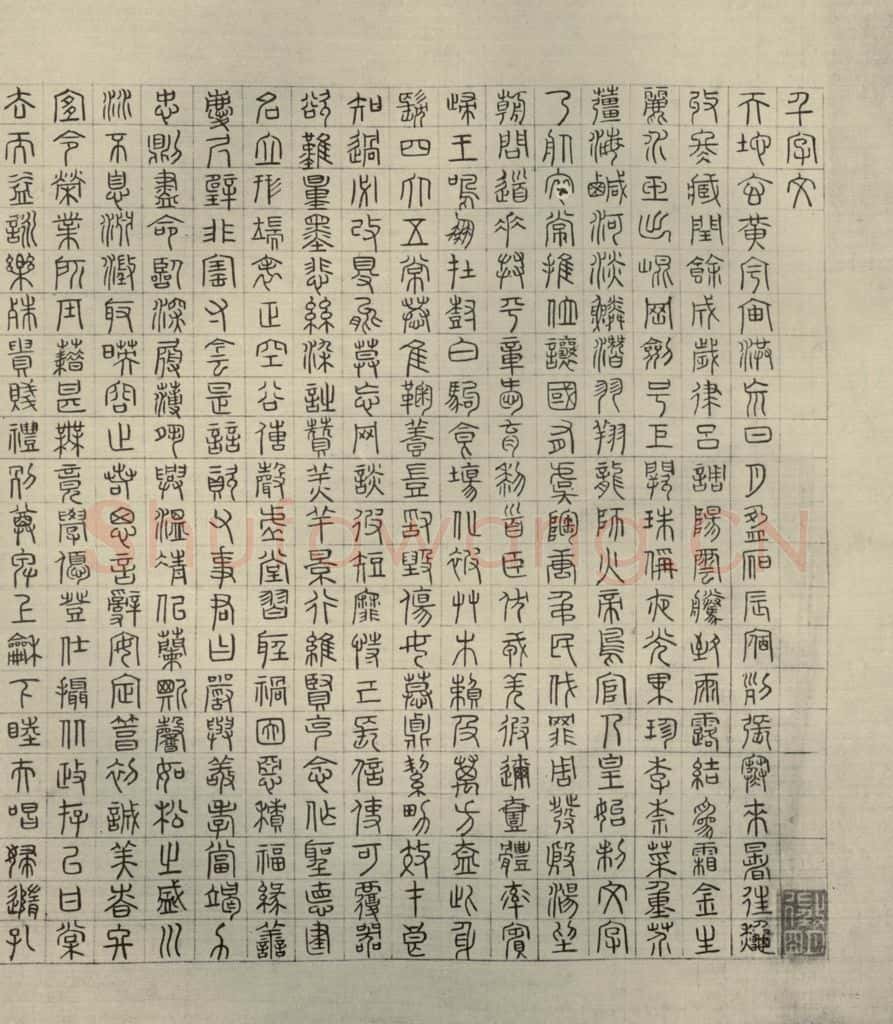 千字文
天地玄黃宇宙洪荒日月盈昃辰宿列張寒來暑往秋
收冬藏閏餘成歲律呂調陽雲騰致雨露結爲霜金生
麗水玉出崐岡劍號巨闕珠稱夜光果珍李柰菜重芥
薑海鹹河淡鱗潛羽翔龍師火帝鳥官人皇始制文字
乃服衣常推位讓國有虞陶唐弔民伐罪周發殷湯坐
朝問道垂拱平章愛育黎首臣伏戎羌遐邇壹體率賓
歸王鳴鳳在樹白駒食場化被草木賴及萬方蓋此身
髮四大五常恭惟鞠養豈敢毀傷女慕貞絜男效才良
知過必改得能莫忘罔談彼短靡恃己長信使可覆器
欲難量墨悲絲染詩讚羔羊景行維賢克念作聖德建
名立形端表正空谷傳聲虛堂習聽禍因惡積福緣善
慶尺璧非寶寸陰是競資父事君曰嚴與敬孝當竭力
忠則盡命臨深履薄夙興溫凊似蘭斯馨如松之盛川
流不息淵澄取映容止若思言辭安定篤初誠美慎終
宜令榮業所基藉甚無竟學優登仕攝从政存以甘棠
去而益詠樂殊貴賤禮別尊卑上龢下睦夫唱婦隨外
Shufawang.CN